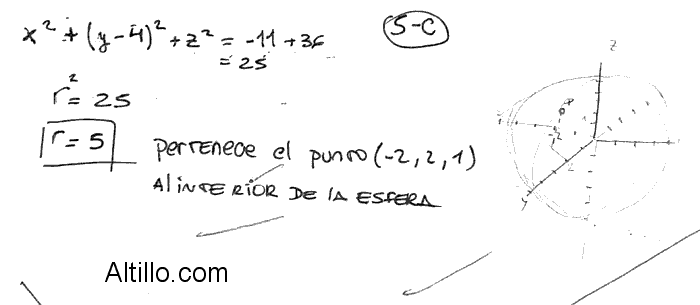 x² + (y-4)² + z² = -11 + 36
= 25
5-C
r² = 25
r = 5
pertenece el punto (-2, 2, 1)
Al INTERIOR DE LA ESFERA
z
y
2
-2
Altillo.com